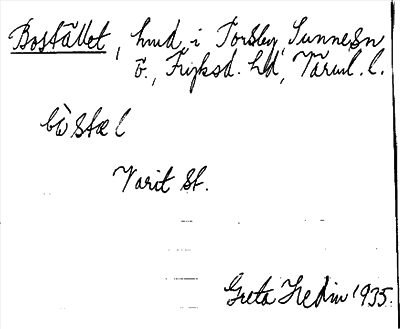 Bostället, hmd i Torsby, Sunne sn
ö., Fryksd. hd, Värml. l.
bòstæl
Varit st.
Greta Hedin 1935.